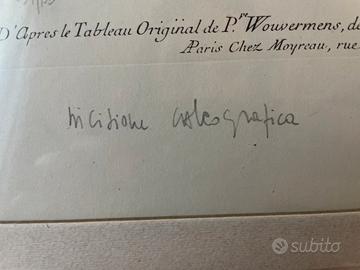 D'Apres le Tableau Original de P.re Wouvermens, de
A Paris Chez Moyreau, rue
incisione calcografica
subito